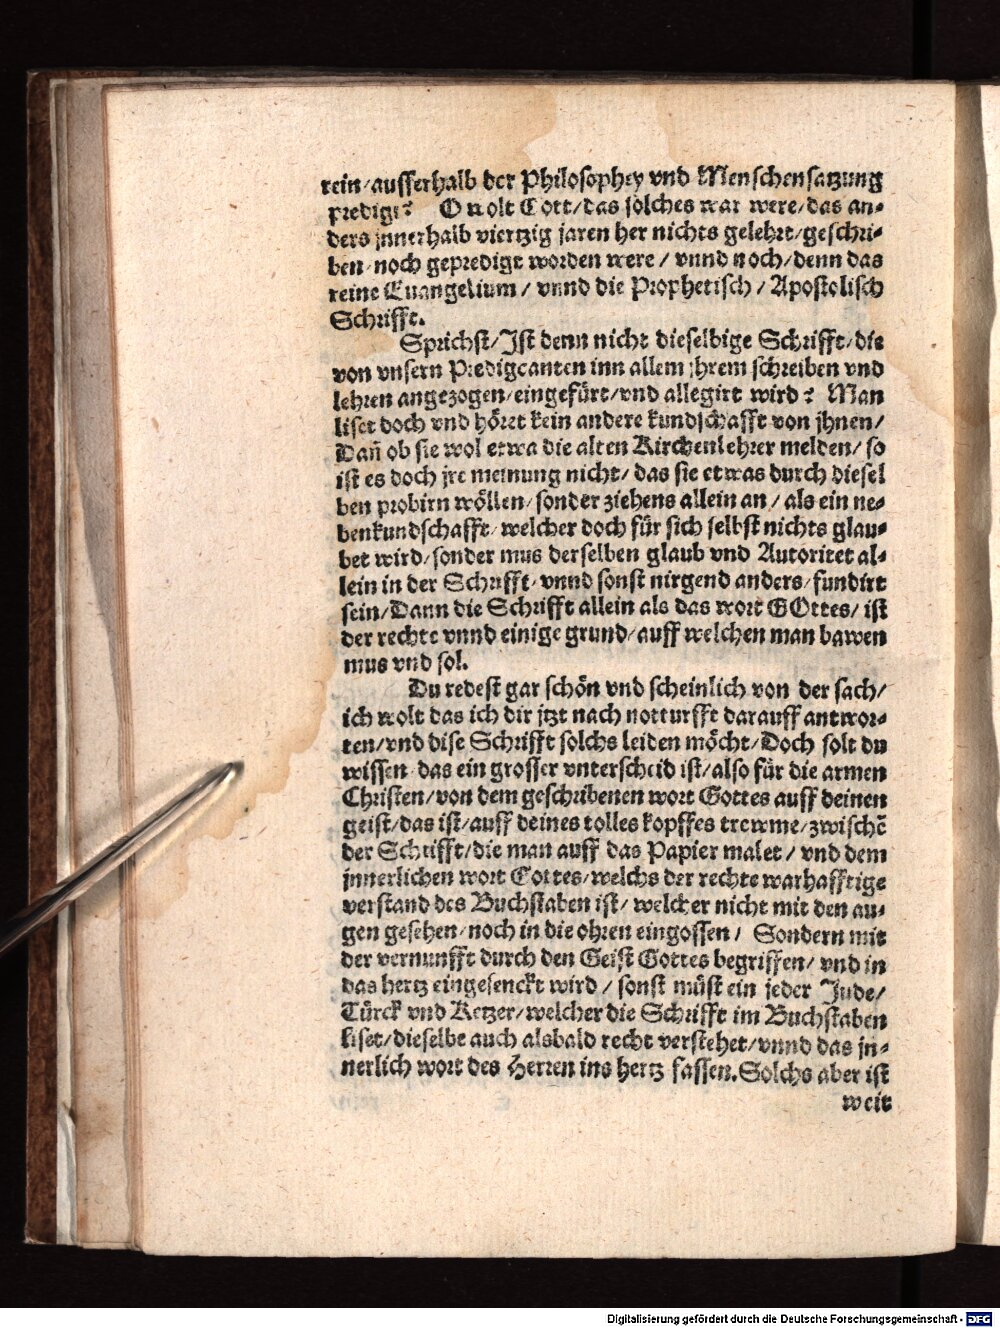 rein/ausserhalb der Philosophey vnd Menschensatzung
predigt? O wolt Gott/das solches war were/das an-
ders jnnerhalb viertzig jaren her nichts gelehrt/geschri-
ben/noch gepredigt worden were/vnnd noch/denn das
reine Euangelium/vnnd die Prophetisch/Apostolisch
Schrifft.
Sprichst/Ist denn nicht dieselbige Schrifft/die
von vnsern Predigcanten inn allem jhrem schreiben vnd
lehren angezogen/eingefürt/vnd allegirt wird? Man
liset doch vnd höret kein andere kundschafft von jhnen/
Dañ ob sie wol etwa die alten Kirchenlehrer melden/so
ist es doch jre meinung nicht/das sie etwas durch diesel
ben probirn wöllen/sonder ziehens allein an/als ein ne-
benkundschafft/welcher doch für sich selbst nichts glau-
bet wird/sonder mus derselben glaub vnd Autoritet al-
lein in der Schrifft/vnnd sonst nirgend anders/fundirt
sein/Dann die Schrifft allein als das wort GOttes/ist
der rechte vnnd einige grund/auff welchen man bawen
mus vnd sol.
Du redest gar schön vnd scheinlich von der sach/
ich wolt das ich dir jtzt nach notturfft darauff antwor-
ten/vnd dise Schrifft solchs leiden möcht/Doch solt du
wissen/das ein grosser vnterscheid ist/also für die armen
Christen/von dem geschribenen wort Gottes auff deinen
geist/das ist/auff deines tolles kopffes trewme/zwischē
der Schrifft/die man auff das Papier malet/vnd dem
jnnerlichen wort Gottes/welchs der rechte warhafftige
verstand des Buchstaben ist/welcher nicht mit den au-
gen gesehen/noch in die ohren eingossen/Sondern mit
der vernunfft durch den Geist Gottes begriffen/vnd in
das hertz eingesenckt wird/sonst müst ein jeder Jude/
Türck vnd Ketzer/welcher die Schrifft im Buchstaben
liset/dieselbe auch alsbald recht verstehet/vnnd das jn-
nerlich wort des Herren ins hertz fassen. Solchs aber ist
weit
Digitalisierung gefördert durch die Deutsche Forschungsgemeinschaft - DFG